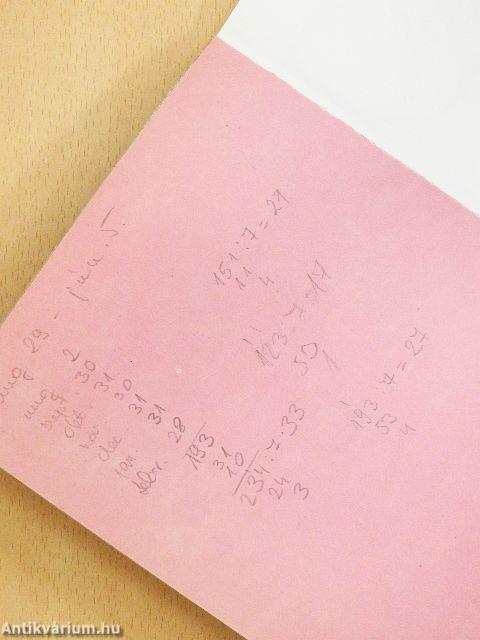 aug 29 - jún. 5.
aug 2
sept. 30
okt. 31
nov 30
dec 31
jan. 31
febr. 28
193
31
10
234 : 7 = 33
24
3
151 : 7 = 21
11
4
123 : 7 = 17
50
1
193 : 7 = 27
53
4
Antikvárium.hu